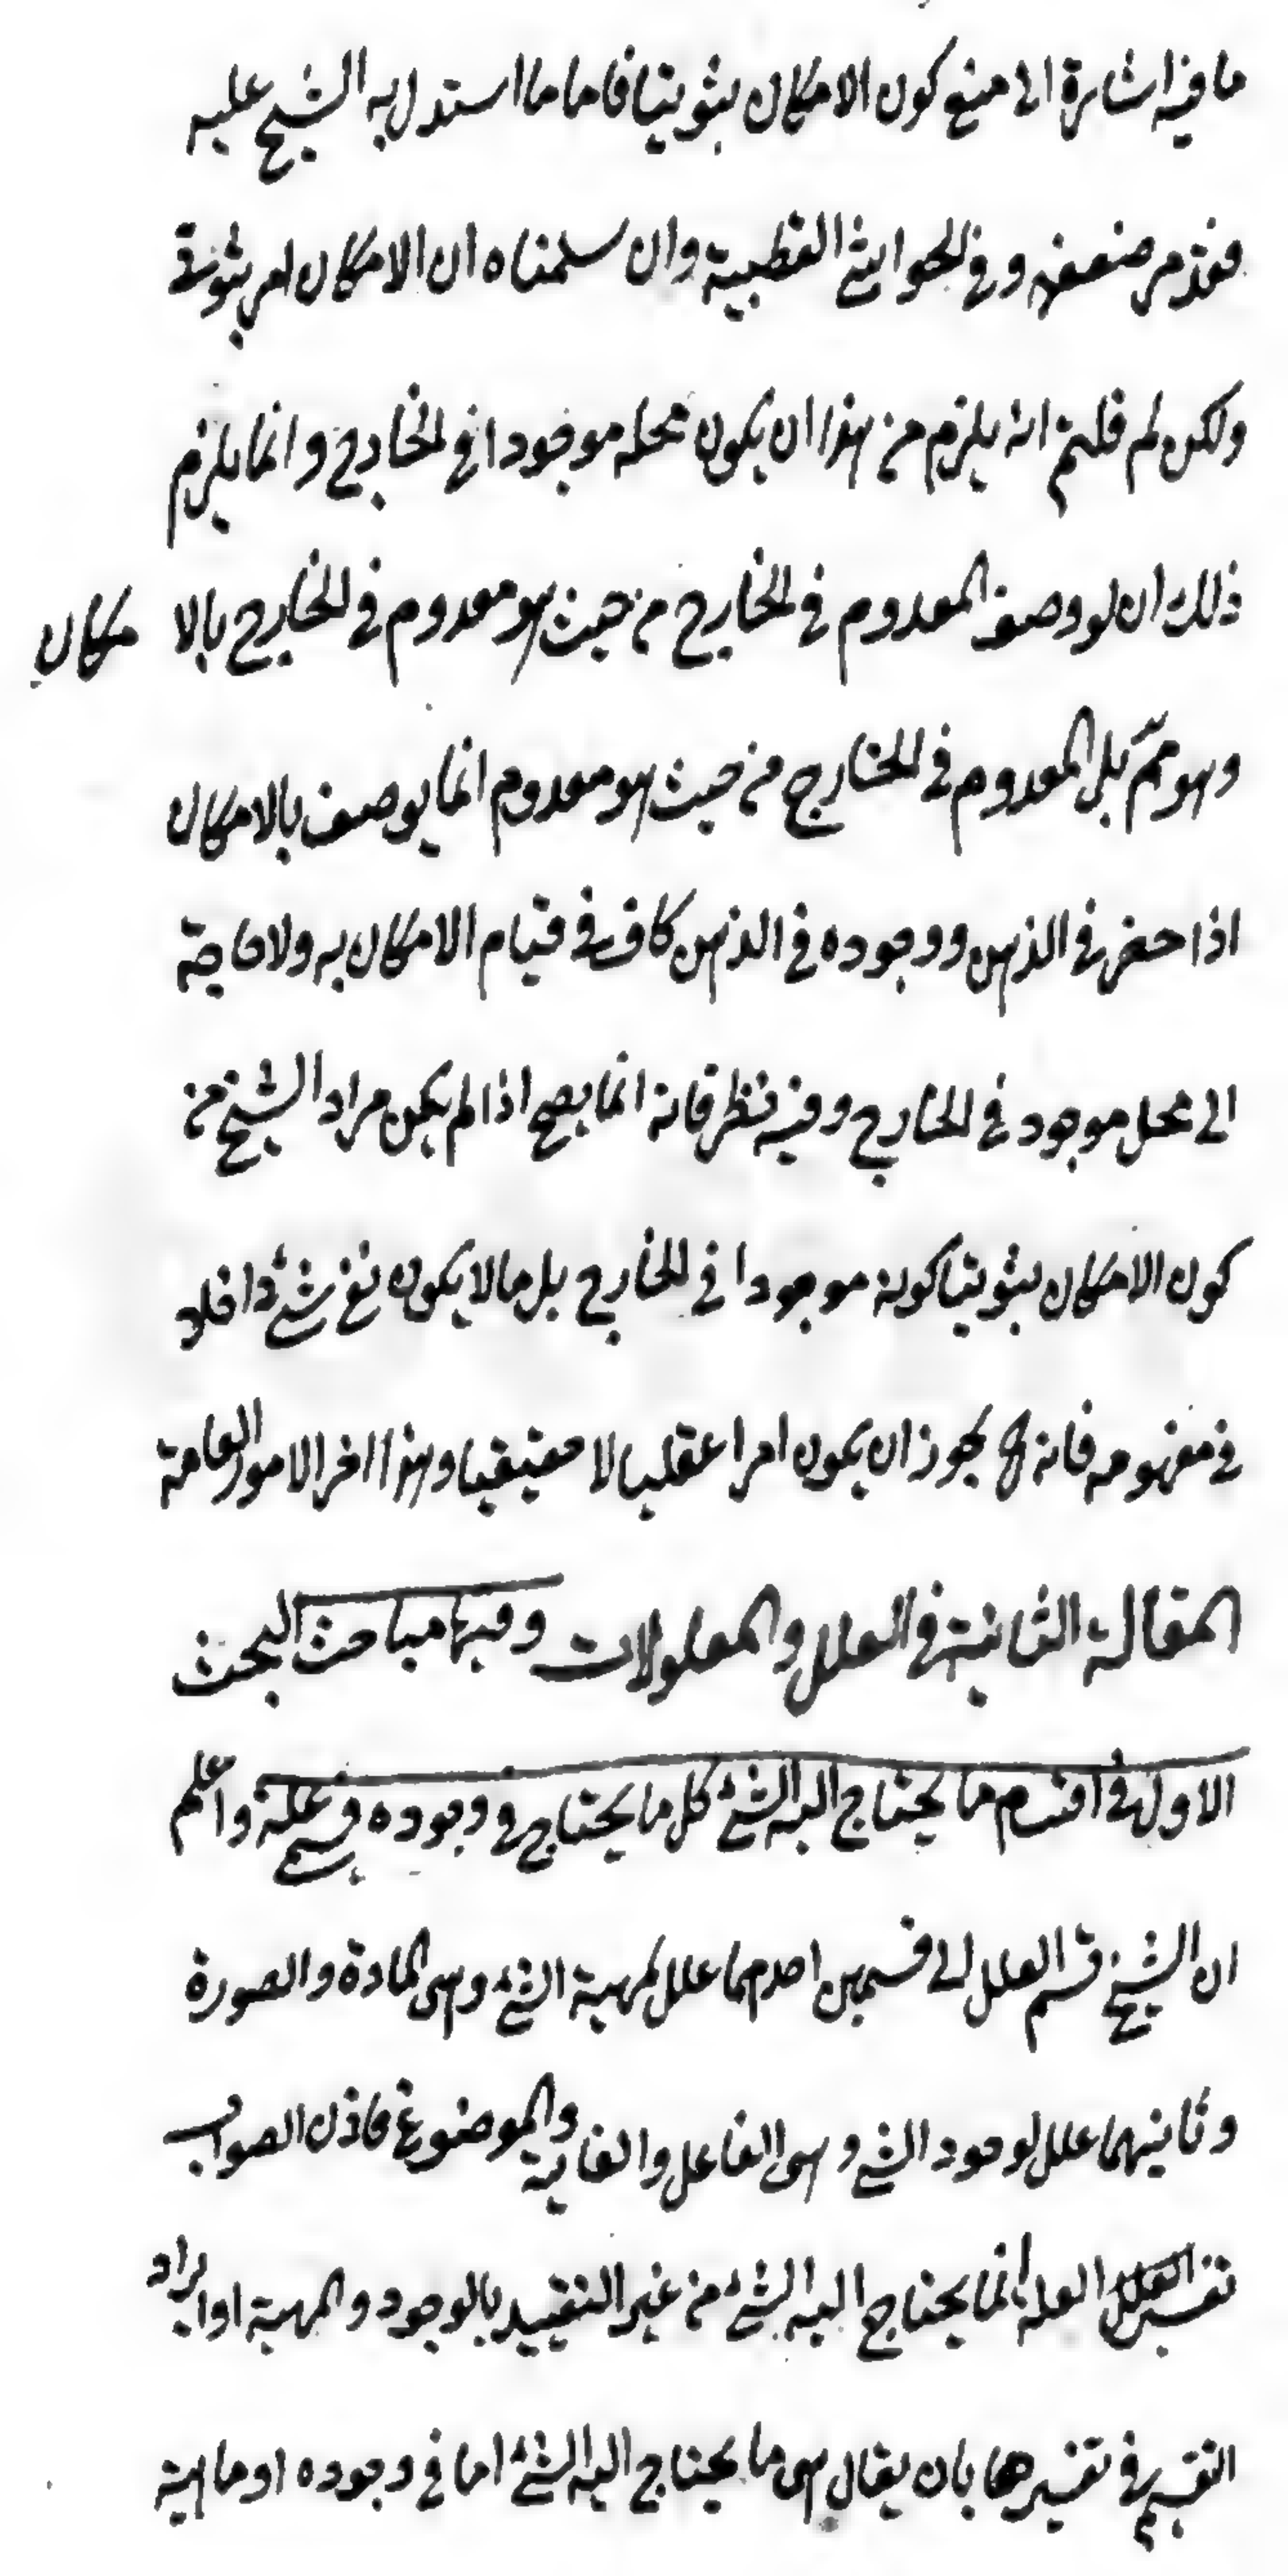 ما فيه اشارة الى منع كون الامكان ثبوتيا فاما ما استدل به الشيخ عليه
فقد مر ضعفه وفى الحواشى القطبية وان سلمناه ان الامكان امر ثبوتى
ولكن لم قلتم انه يلزم من هذا ان يكون محله موجودا فى الخارج وانما يلزم
ذلك ان لو وصف المعدوم فى الخارج من حيث هو معدوم فى الخارج بالا مكان
وهو مم بل المعدوم فى الخارج من حيث هو معدوم انما يوصف بالامكان
اذا حضر فى الذهن ووجوده فى الذهن كاف فى قيام الامكان به ولا حاجة
الى محل موجود فى الخارج وفيه نظر فانه انما يصح اذا لم يكن مراد الشيخ من
كون الامكان ثبوتيا كونه موجودا فى الخارج بل ما لا يكون نفى شئ داخلا
فى مفهومه فانه ح يجوز ان يكون امرا عقليا لا حقيقيا وهذا اخر الامور العامة
المقالة الثانية فى العلل والمعلولات وفيها مباحث البحث
الاول فى اقسام ما يحتاج اليه الشئ كل ما يحتاج فى وجوده يسمى علة واعلم
ان الشيخ قسم العلل الى قسمين احدهما علل لمهية الشئ وهى المادة والصورة
وثانيهما علل لوجود الشئ وهى الفاعل والغاية والموضوع فاذن الصواب
تفسير العلة انما يحتاج اليه الشئ من غير التقييد بالوجود والمهية او ايراد
التقسيم فى تفسيرها بان يقال هى ما يحتاج اليه الشئ اما فى وجوده او ماهية